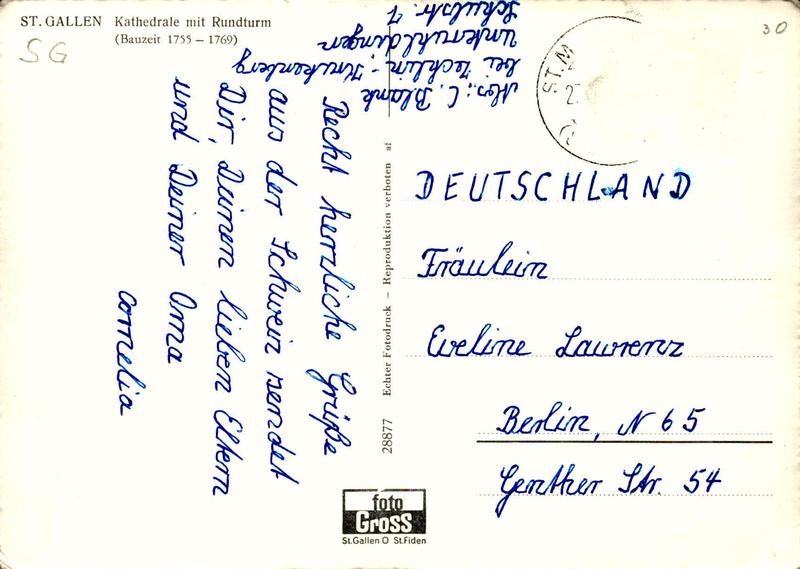 ST. GALLEN Kathedrale mit Rundturm
(Bauzeit 1755 – 1769)
SG
30
Recht herzliche Grüße
aus der Schweiz sendet
Dir, Deinen lieben Eltern
und Deiner Oma
Cornelia
Abs.: C. Blank
bei
Unteruhldingen
Schulstr. 7
Echter Fotodruck – Reproduktion verboten af
28877
ST. M
DEUTSCHLAND
Fräulein
Eveline Lawrenz
Berlin, N 65
Genther Str. 54
foto
Gross
St.Gallen O St.Fiden